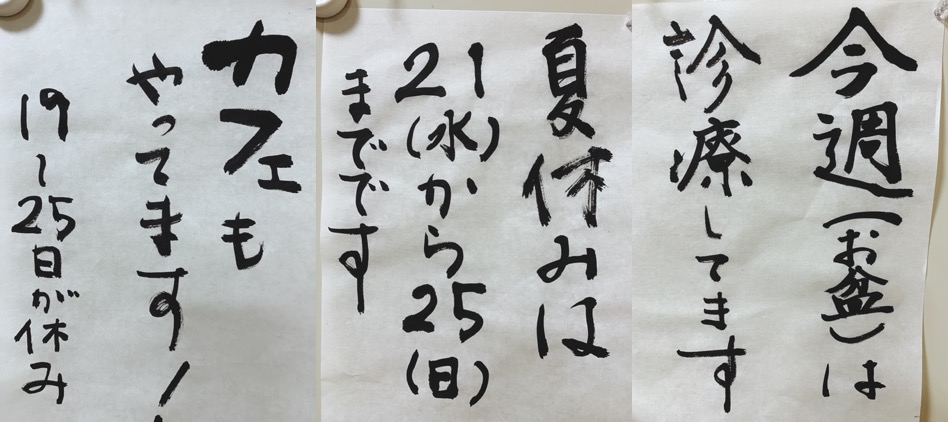 今週(お盆)は
診療してます
夏休みは
21(水)から25(日)
までです
カフェも
やってます!
19~25日が休み